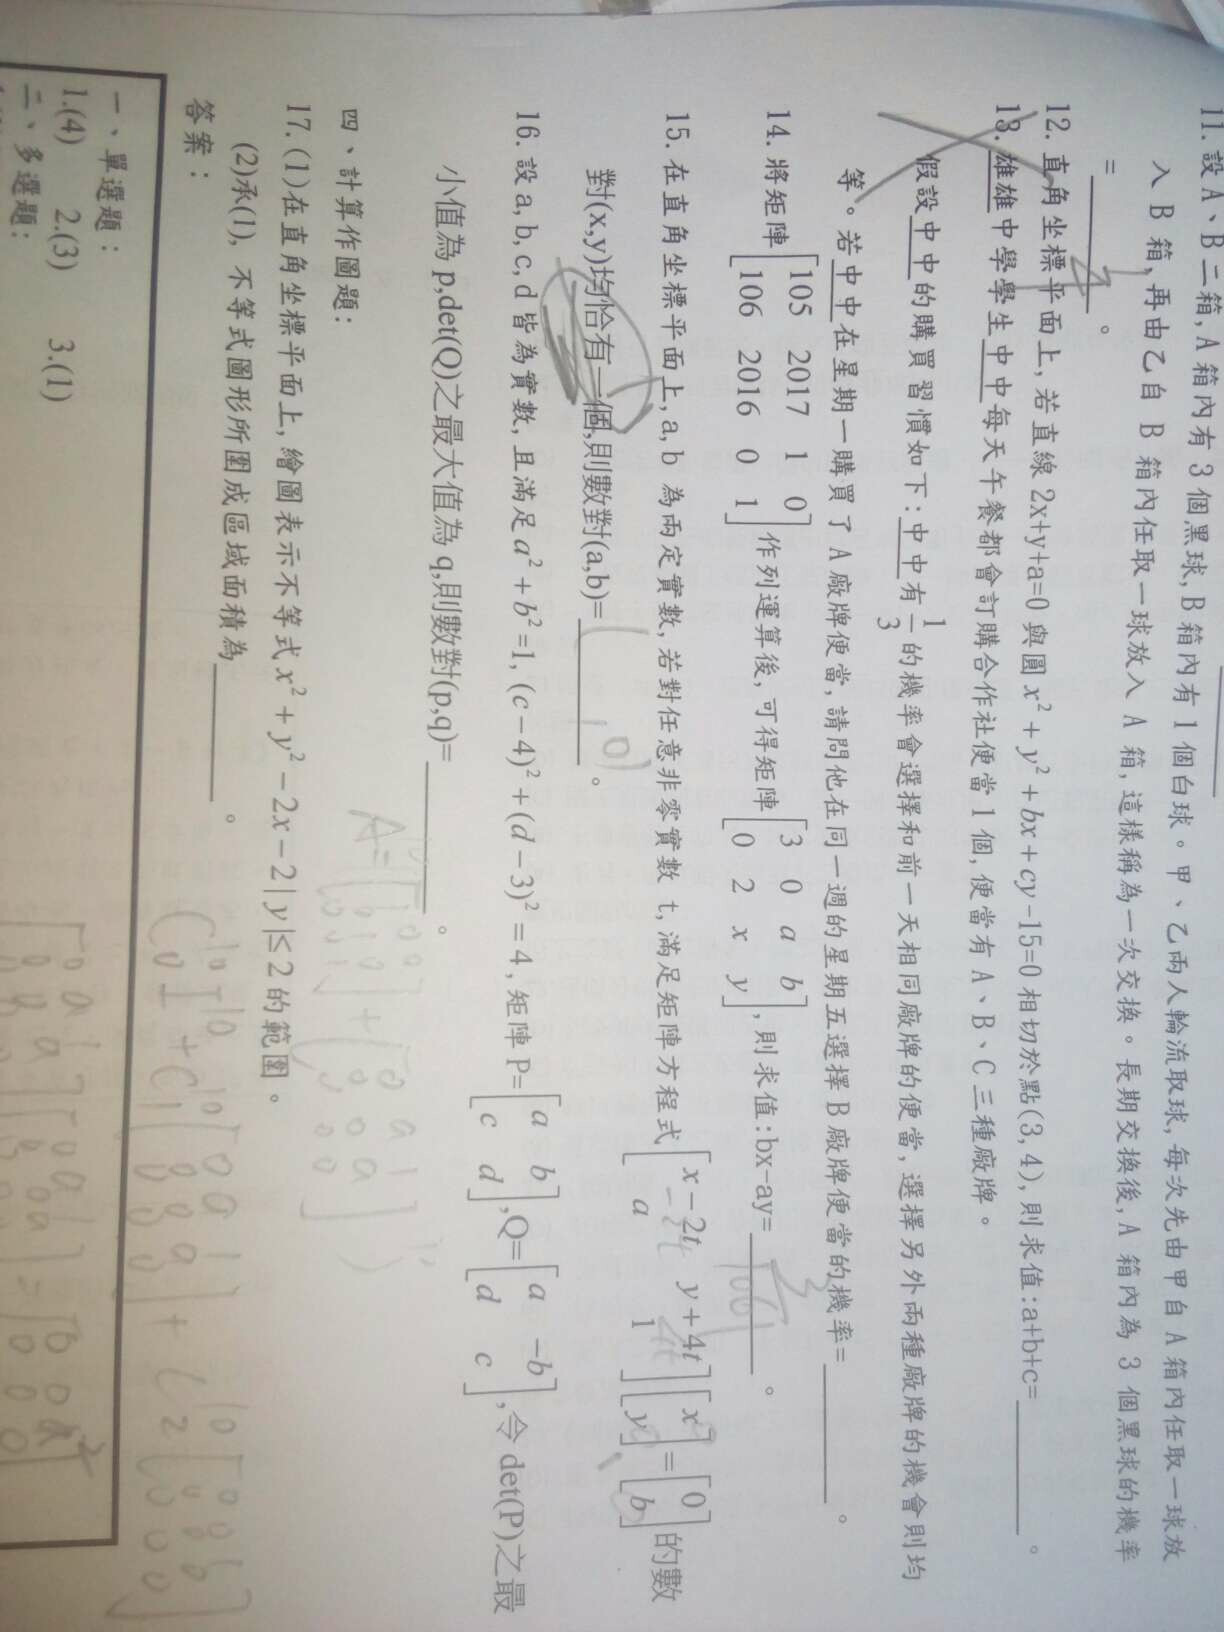 11. 設 A、B 二箱, A 箱內有 3 個黑球, B 箱內有 1 個白球。甲、乙兩人輪流取球, 每次先由甲自 A 箱內任取一球放
入 B 箱, 再由乙自 B 箱內任取一球放入 A 箱, 這樣稱為一次交換。長期交換後, A 箱內為 3 個黑球的機率
=________。
12. 直角坐標平面上, 若直線 2x+y+a=0 與圓 x²+y²+bx+cy-15=0 相切於點(3, 4), 則求值:a+b+c=________。
13. 雄雄中學學生中中每天午餐都會訂購合作社便當 1 個, 便當有 A、B、C 三種廠牌。
假設中中的購買習慣如下:中中有 1/3 的機率會選擇和前一天相同廠牌的便當, 選擇另外兩種廠牌的機會則均
等。若中中在星期一購買了 A 廠牌便當, 請問他在同一週的星期五選擇 B 廠牌便當的機率=________。
14. 將矩陣 [105 2017 1 0; 106 2016 0 1] 作列運算後, 可得矩陣 [3 0 a b; 0 2 x y], 則求值:bx-ay=________。
15. 在直角坐標平面上, a, b 為兩定實數, 若對任意非零實數 t, 滿足矩陣方程式 [x-2t y+4t; a 1][x; y]=[0; b] 的數
對(x,y)均恰有一個,則數對(a,b)=________。
16. 設 a, b, c, d 皆為實數, 且滿足 a²+b²=1, (c-4)²+(d-3)²=4, 矩陣 P=[a b; c d], Q=[a -b; d c], 令 det(P)之最
小值為 p,det(Q)之最大值為 q,則數對(p,q)=________。
四、計算作圖題:
17. (1)在直角坐標平面上, 繪圖表示不等式 x²+y²-2x-2|y|≤2 的範圍。
(2)承(1), 不等式圖形所圍成區域面積為________。
答案:
一、單選題:
1.(4) 2.(3) 3.(1)
二、多選題: